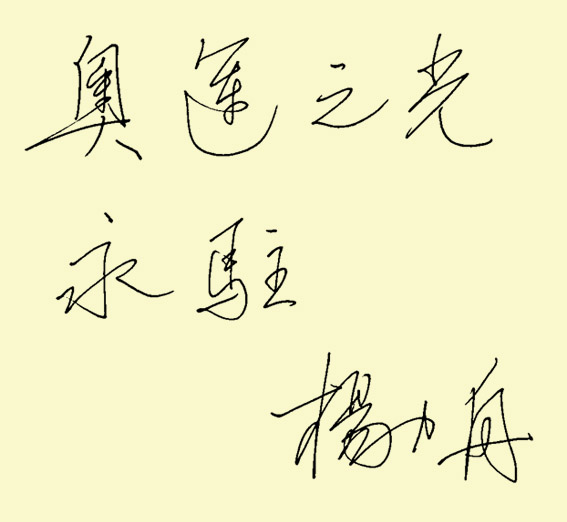 奥運之光
永駐
楊力舟